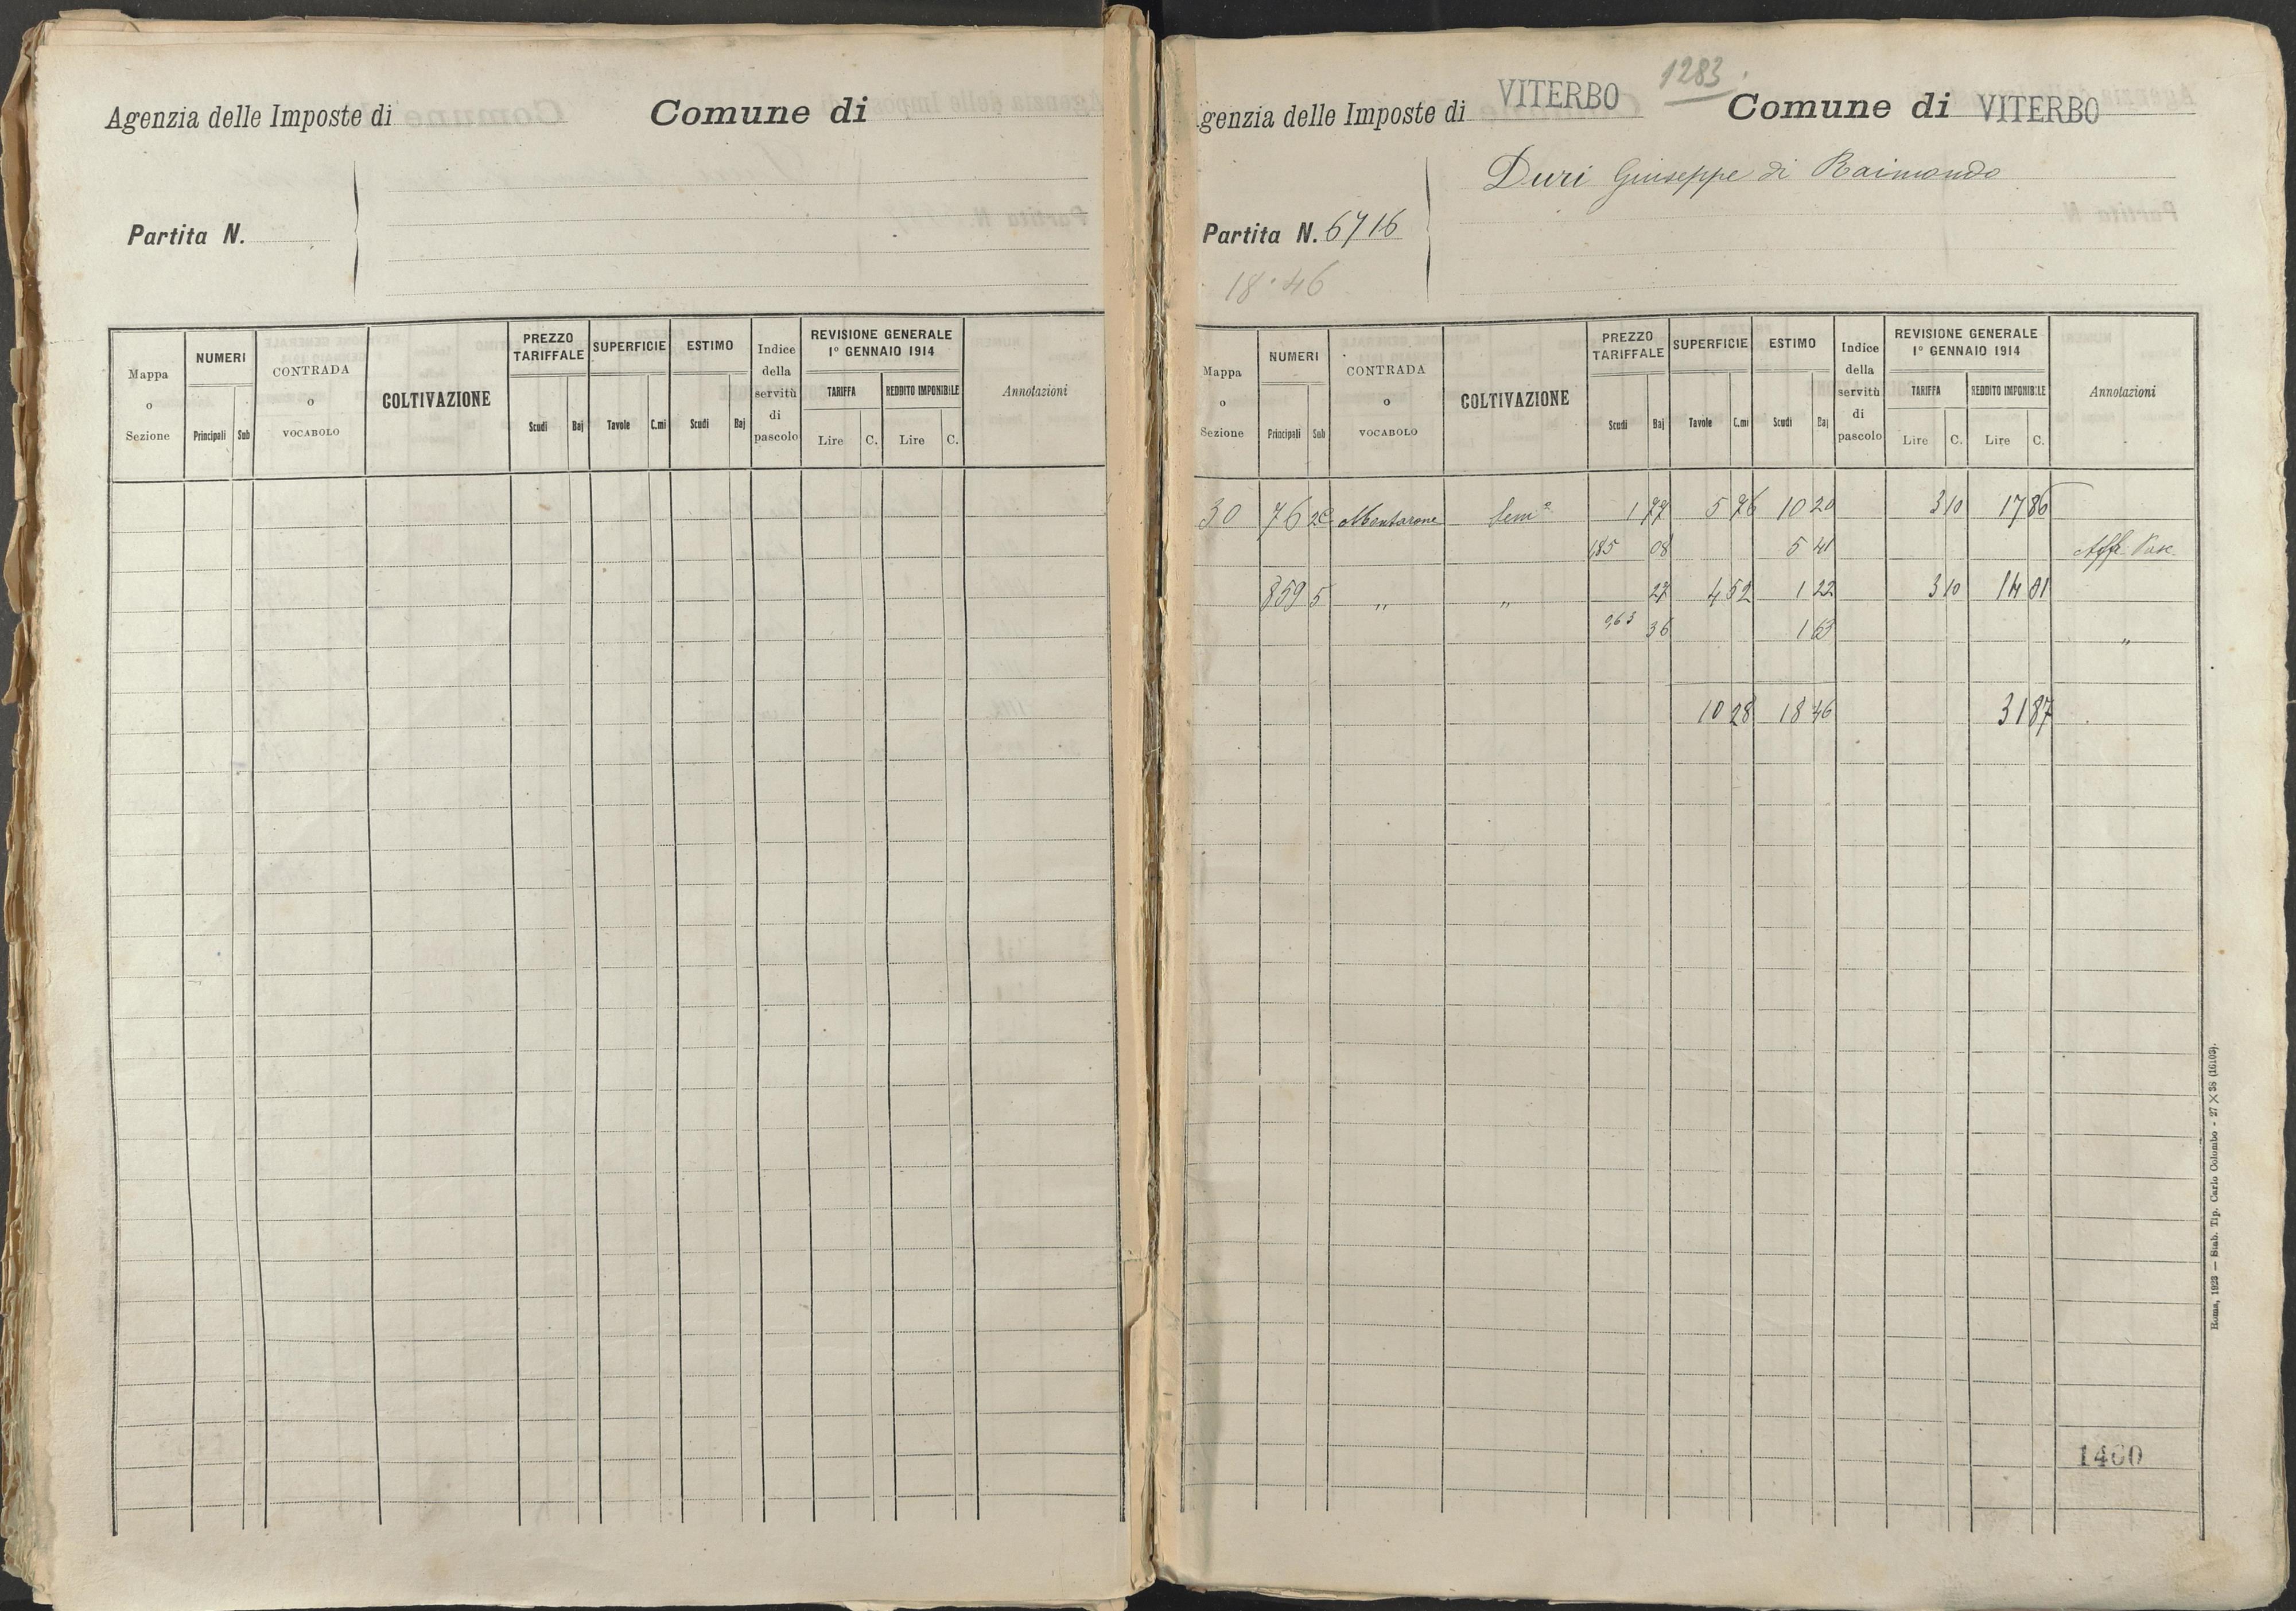 Agenzia delle Imposte di Comune di
Partita N.
Mappa o Sezione NUMERI Principali Sub CONTRADA o VOCABOLO COLTIVAZIONE PREZZO TARIFFALE Scudi Baj SUPERFICIE Tavole C.mi ESTIMO Scudi Baj Indice della servitù di pascolo REVISIONE GENERALE 1° GENNAIO 1914 TARIFFA Lire C. REDDITO IMPONIBILE Lire C. Annotazioni
1283
genzia delle Imposte di VITERBO Comune di VITERBO
Duri Giuseppe di Raimondo
Partita N. 6716
18.46
Mappa o Sezione NUMERI Principali Sub CONTRADA o VOCABOLO COLTIVAZIONE PREZZO TARIFFALE Scudi Baj SUPERFICIE Tavole C.mi ESTIMO Scudi Baj Indice della servitù di pascolo REVISIONE GENERALE 1° GENNAIO 1914 TARIFFA Lire C. REDDITO IMPONIBILE Lire C. Annotazioni
30 76 Montarone Sem e 1 77 5 76 10 20 3 10 17 86
5 41
859 5 " " 27 4 52 1 22 3 10 14 01
36 1 63 "
10 28 18 46 31 87
1460
Roma, 1923 — Stab. Tip. Carlo Colombo - 27 X 38 (16103).